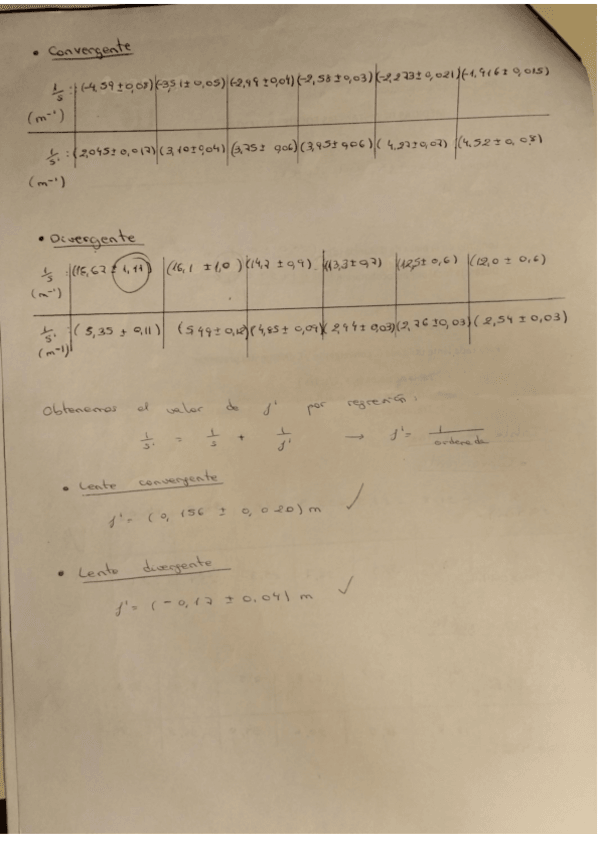 • Convergente
1/s : (-4,59±0,08) (-3,51±0,05) (-2,99±0,04) (-2,58±0,03) (-2,273±0,021) (-1,916±0,015)
(m⁻¹)
1/s' : (2,045±0,017) (3,10±0,04) (3,75±0,06) (3,95±0,06) (4,27±0,07) (4,52±0,08)
(m⁻¹)
• Divergente
1/s : (16,67±1,11) (16,1±1,0) (14,7±0,9) (13,3±0,7) (12,5±0,6) (12,0±0,6)
(m⁻¹)
1/s' : (5,35±0,11) (5,49±0,12) (4,85±0,09) (2,94±0,03) (2,76±0,03) (2,54±0,03)
(m⁻¹)
Obtenemos el valor de f' por regresión:
1/s' = 1/s + 1/f' → f' = 1/ordenada
• Lente convergente
f' = (0,156 ± 0,020) m ✓
• Lente divergente
f' = (-0,17 ± 0,04) m ✓